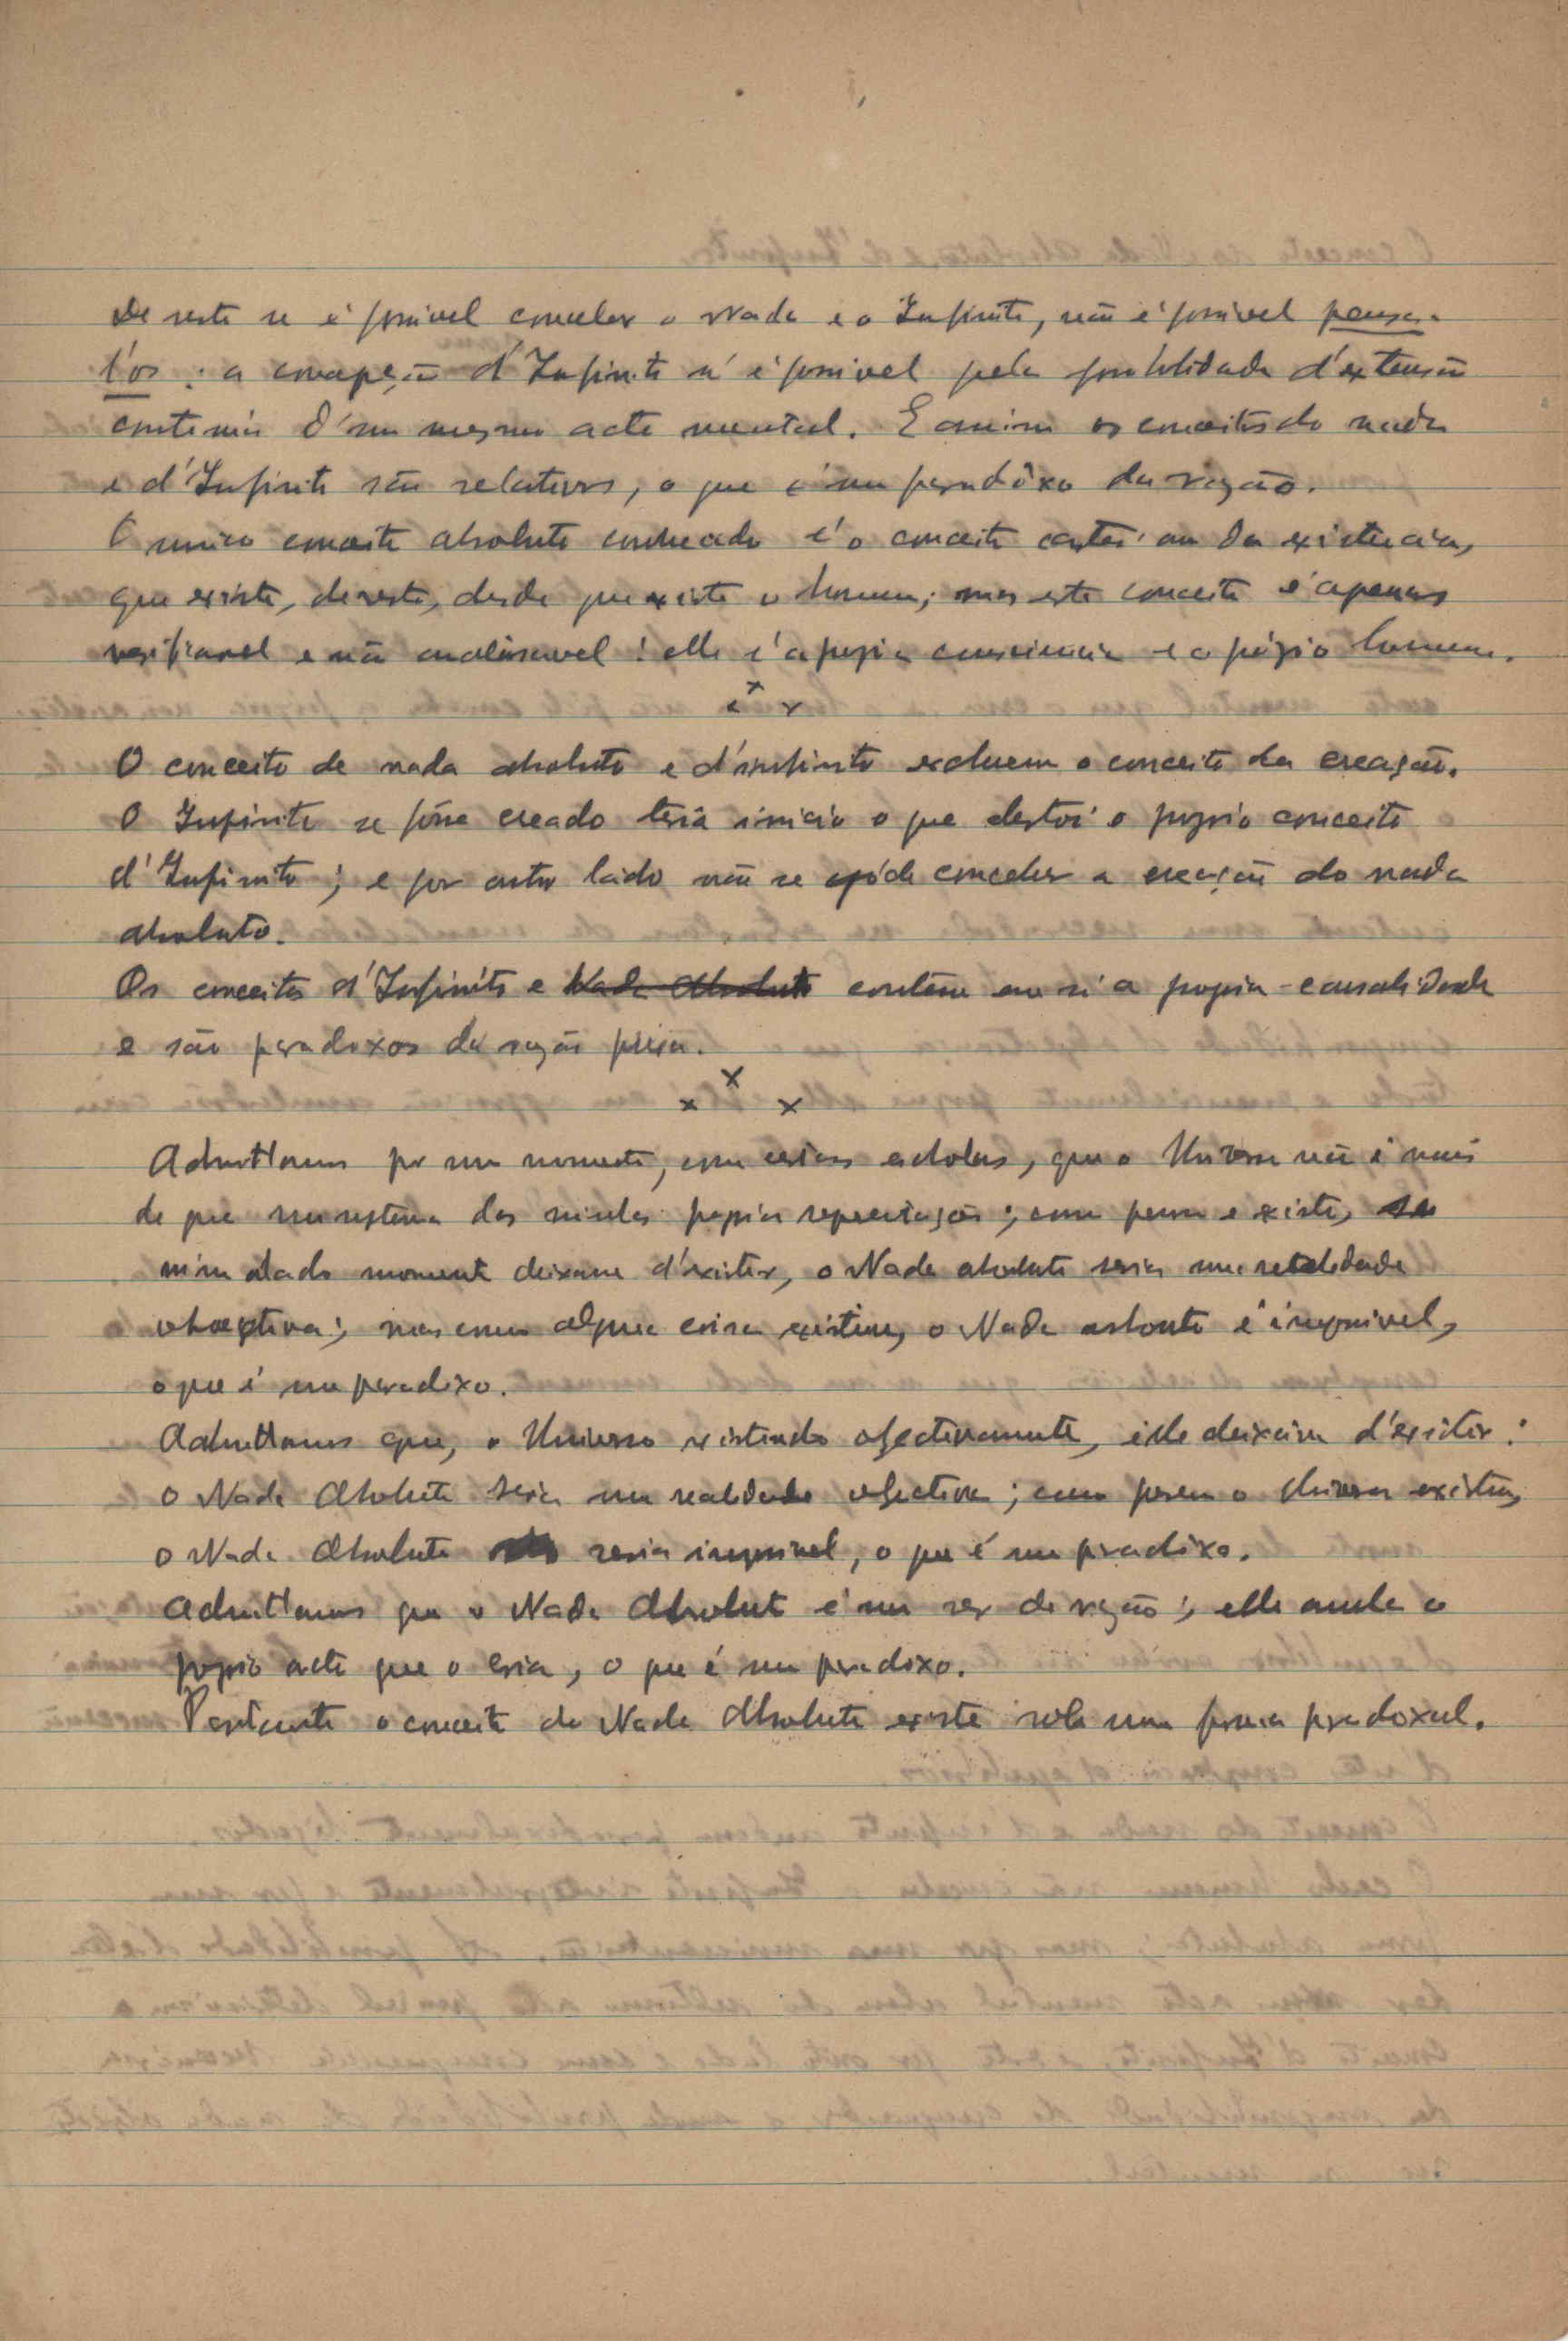 De resto se é possivel conceber o Nada e o Infinito, não é possivel pensa-
l'os: a concepção d'Infinito só é possivel pela possibilidade d'extensão
continua d'um mesmo acto mental. E assim os conceitos do nada
e d'Infinito são relativos, o que é um paradôxo da razão.
O unico conceito absoluto conhecido é o conceito cartesiano da existencia,
que existe, de resto, desde que existe o homem; mas este conceito é apenas
verificavel e não analisavel: elle é a propria consciencia e o próprio homem.
x x x
O conceito de nada absoluto e d'infinito excluem o conceito da creação.
O Infinito se fôsse creado teria inicio o que destroi o proprio conceito
d'Infinito; e por outro lado não se póde conceber a creação do nada
absoluto.
Os conceitos d'Infinito e Nada Absoluto contêm em si a propria causalidade
e são paradoxos da razão pura.
x x x
Admittamos por um momento, com certas escholas, que o Universo não é mais
do que um systema das minhas proprias representações; como penso e existo, se
n'um dado momento deixasse d'existir, o Nada absoluto seria uma realidade
; mas como alguma coisa existiu, o Nada é impossivel,
o que é um paradoxo.
Admittamos que, o Universo existindo objectivamente, elle deixava d'existir:
o Nada Absoluto seria uma realidade objectiva; como porem o Universo existiu,
o Nada Absoluto seria impossivel, o que é um paradoxo.
Admittamos que o Nada Absoluto é um ser de razão; elle anula o
proprio acto que o cria, o que é um paradoxo.
Portanto o conceito do Nada Absoluto existe sob uma forma paradoxal.